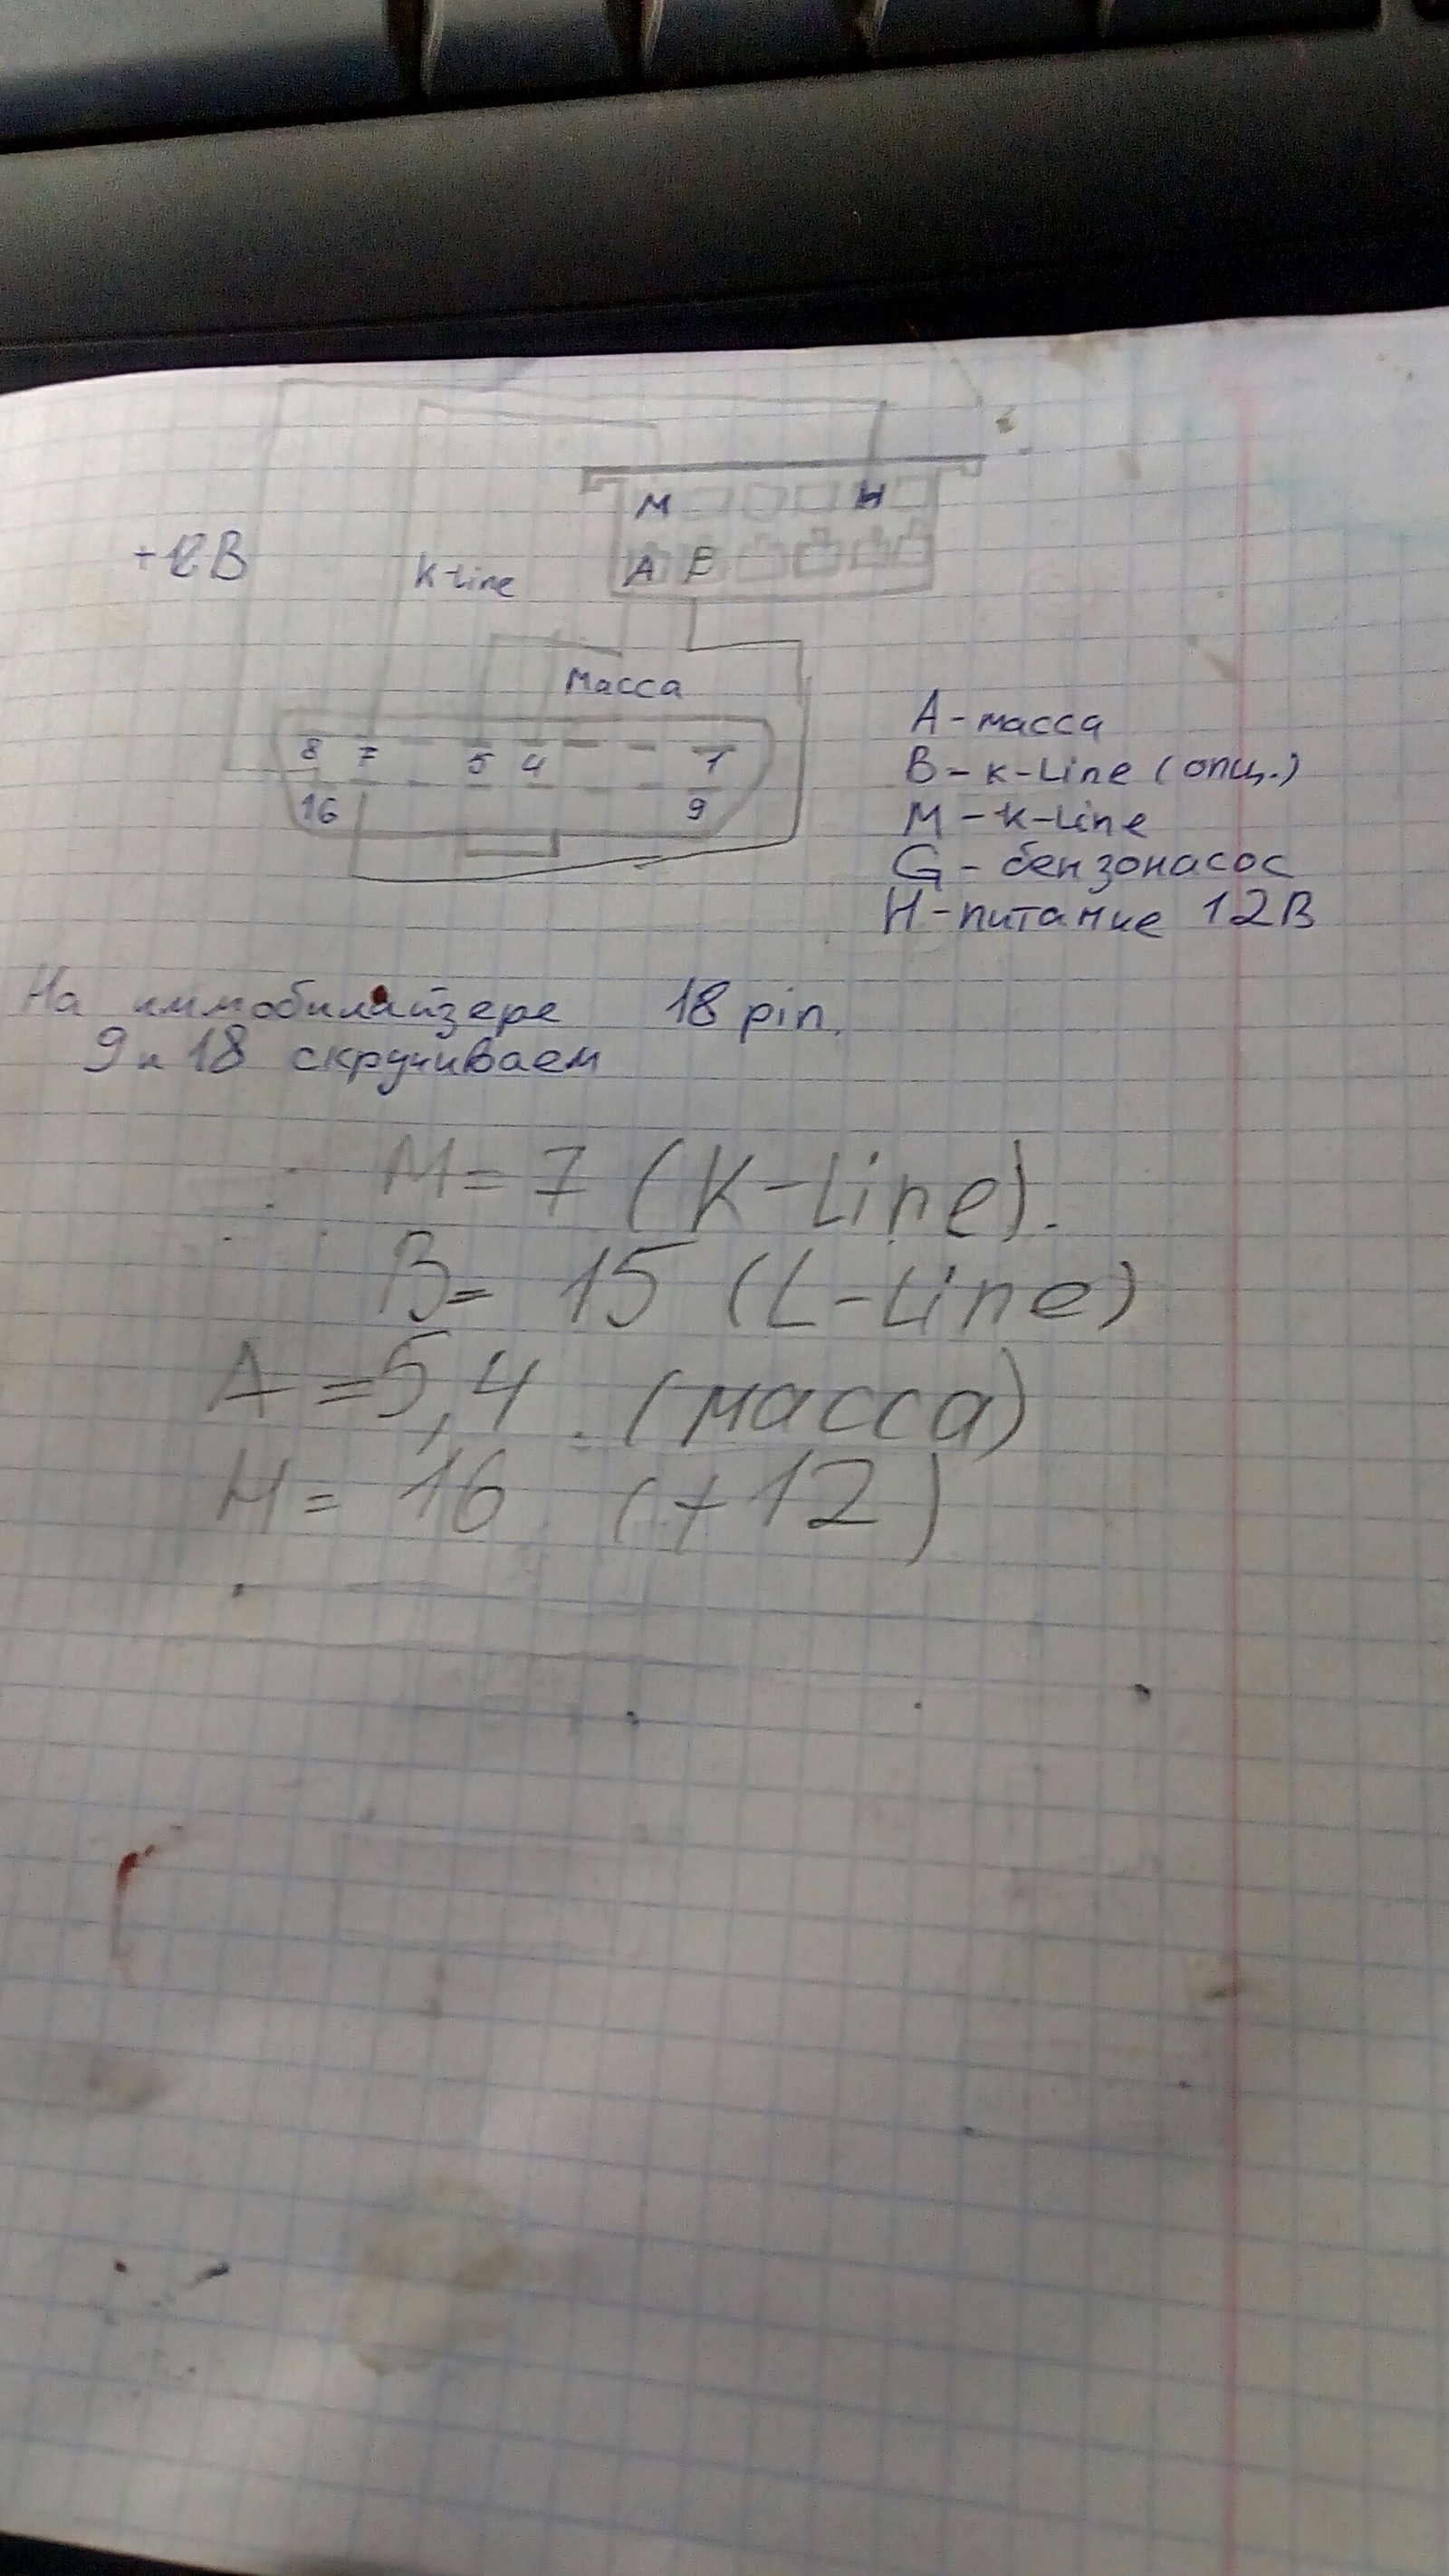 М Н
А В
+12В
K-Line
Масса
8 7 5 4 1
16 9
А - масса
В - к-Line (опц.)
М - к-Line
G - бензонасос
Н - питание 12В
На иммобилайзере 18 pin.
9 и 18 скручиваем
М = 7 (K-Line).
В = 15 (L-Line)
А = 5,4 (масса)
Н = 16 (+12)